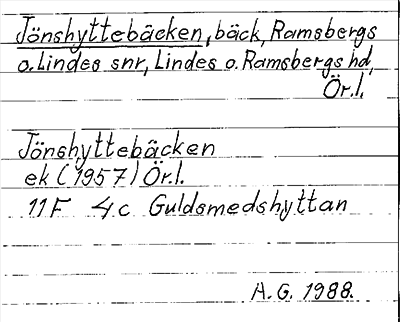 Jönshyttebäcken, bäck, Ramsbergs
o. Lindes snr, Lindes o. Ramsbergs hd,
Ör.l.
Jönshyttebäcken
ek (1957) Ör.l.
11F 4c Guldsmedshyttan
A.G. 1988.